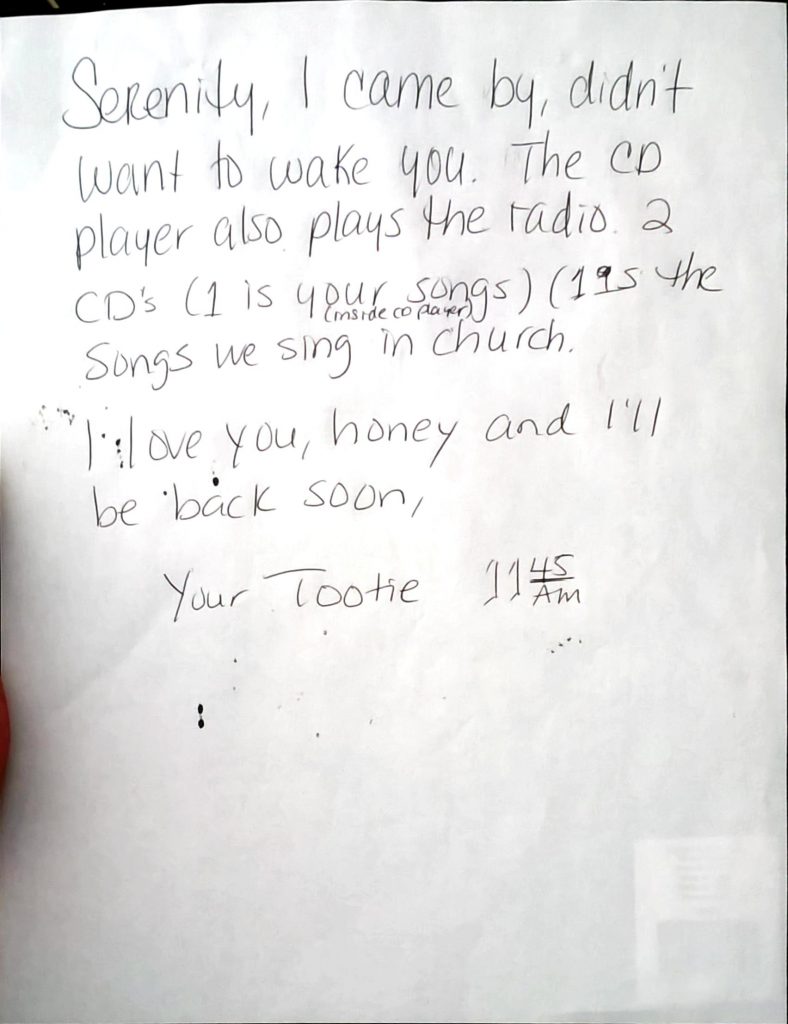 Serenity, I came by, didn't
want to wake you. The CD
player also plays the radio. 2
CD's (1 is your songs) (1 is the
(inside CD player)
songs we sing in church.
I love you, honey and I'll
be back soon,
Your Tootie 11 45 AM